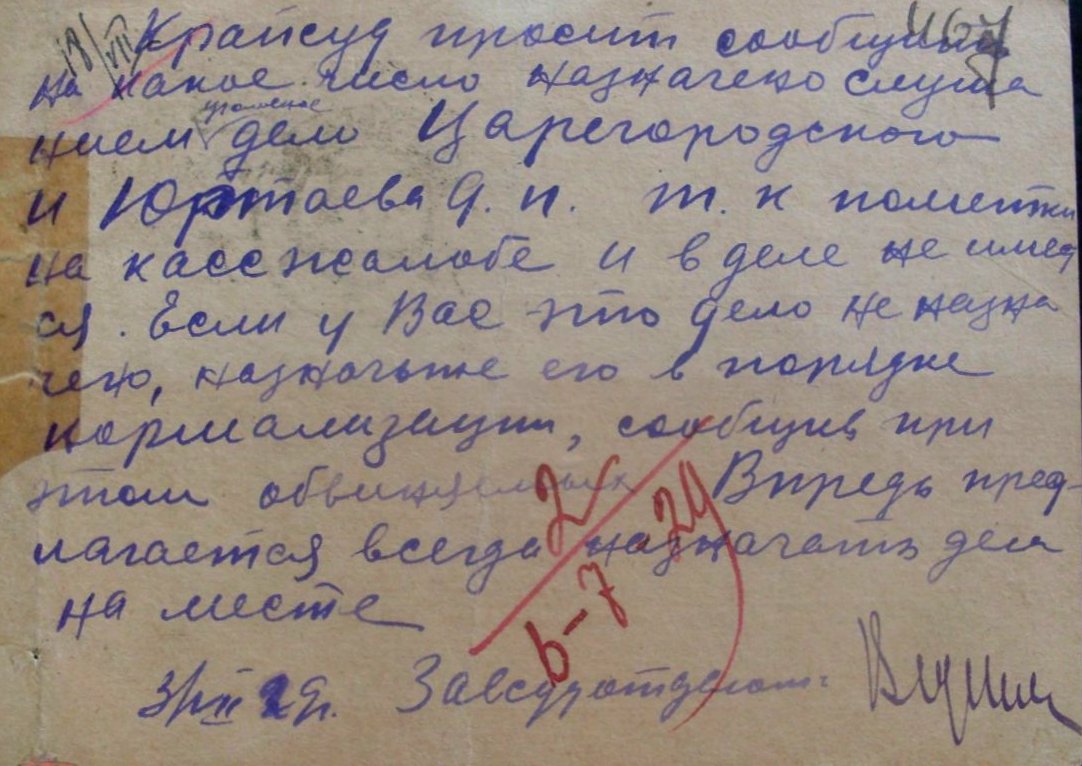 18/VII
467
Крайсуд просит сообщить
на какое число назначено слуша
нием уголовное дело Царегородского
и Юртаева Я. п. т. к пометки
на кассжалобе и в деле не имеет
ся. Если у Вас это дело не назна
чено, назначьте его в порядке
нормализации, сообщив при
этом обвиняемых Впредь пред-
лагается всегда назначать дела
на месте
2/ 6-7 29
29г. Завсудотделом